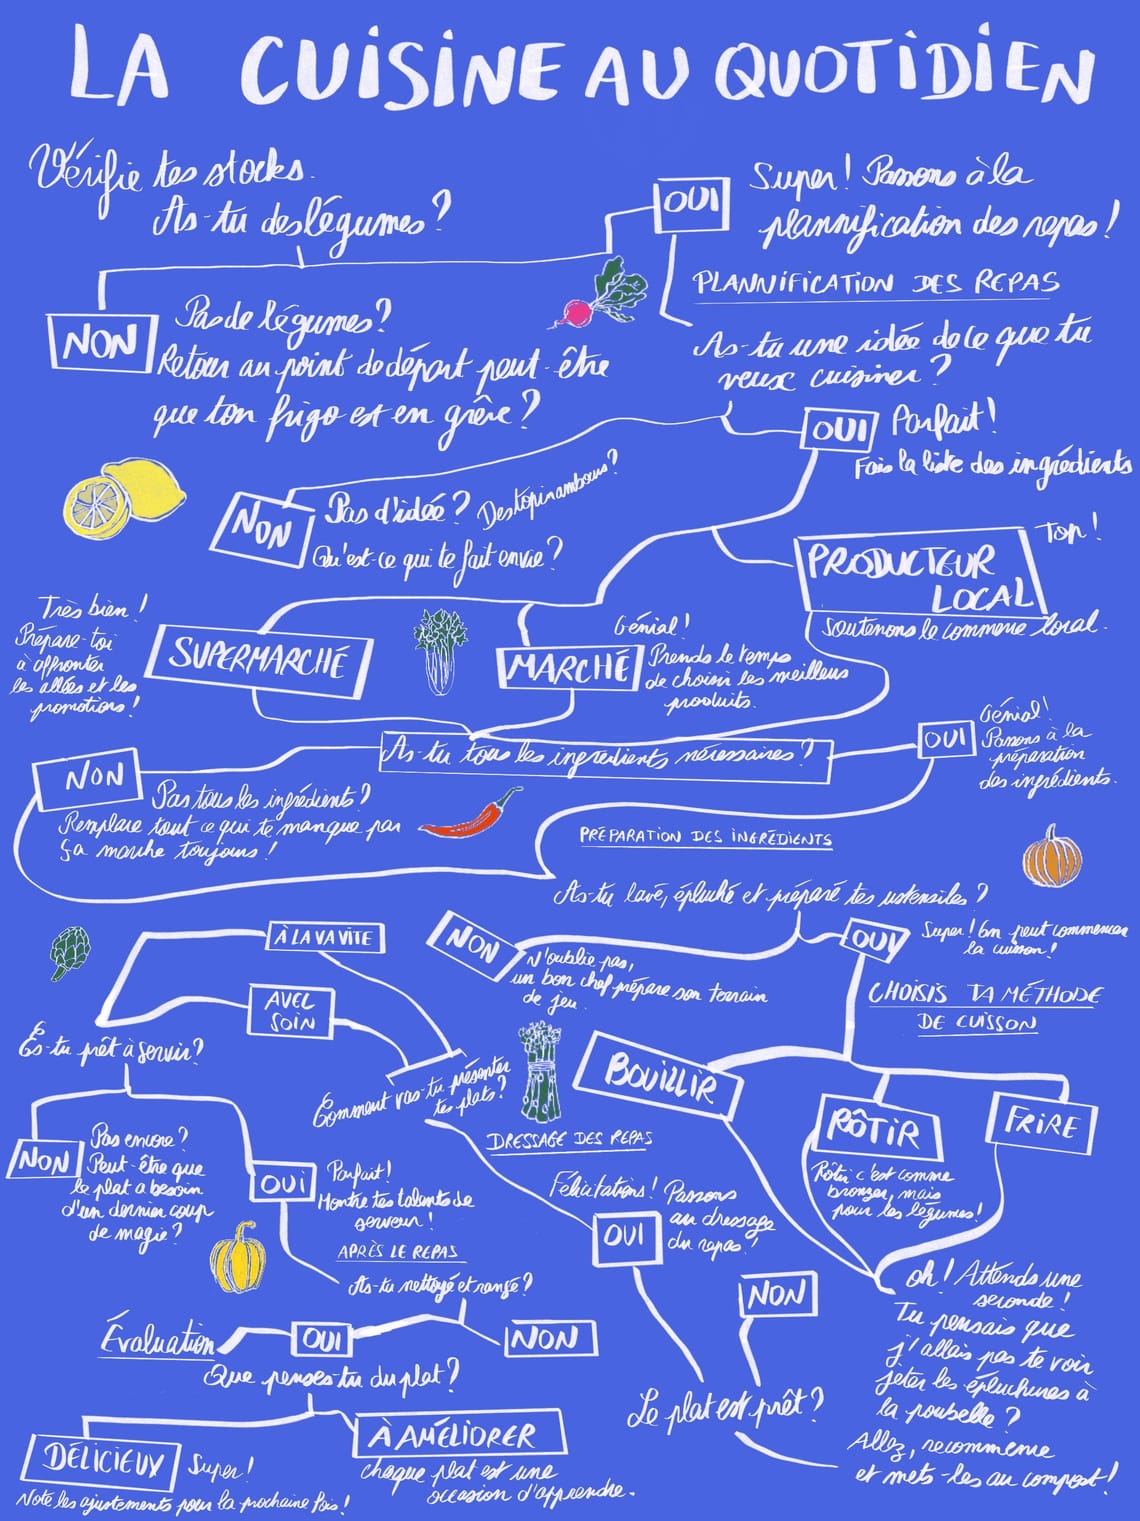 LA CUISINE AU QUOTIDIEN
Vérifie tes stocks.
As-tu des légumes?
OUI
Super! Passons à la
plannification des repas!
NON
Pas de légumes?
Retour au point de départ peut-être
que ton frigo est en grève?
PLANNIFICATION DES REPAS
As-tu une idée de ce que tu
veux cuisiner?
OUI
Parfait!
Fais la liste des ingrédients
NON
Pas d'idée? Des topinambours?
Qu'est-ce qui te fait envie?
PRODUCTEUR
LOCAL
Top!
Soutenons le commerce local.
Très bien!
Prépare-toi
à affronter
les allées et les
promotions!
SUPERMARCHÉ
MARCHÉ
Génial!
Prends le temps
de choisir les meilleurs
produits.
As-tu tous les ingrédients nécessaires?
OUI
Génial!
Passons à la
préparation
des ingrédients.
NON
Pas tous les ingrédients?
Remplace tout ce qui te manque par
ça marche toujours!
PRÉPARATION DES INGRÉDIENTS
As-tu lavé, épluché et préparé tes ustensiles?
NON
N'oublie pas,
un bon chef prépare son terrain
de jeu.
OUI
Super! On peut commencer
la cuisson!
CHOISIS TA MÉTHODE
DE CUISSON
BOUILLIR
RÔTIR
Rôtir c'est comme
bronzer, mais
pour les légumes!
FRIRE
oh! Attends une
seconde!
Tu pensais que
j'allais pas te voir
jeter les épluchures à
la poubelle?
Allez, recommence
et mets-les au compost!
Le plat est prêt?
NON
OUI
Félicitations! Passons
au dressage
du repas!
DRESSAGE DES REPAS
Comment vas-tu présenter
tes plats?
À LA VA VITE
AVEC
SOIN
Es-tu prêt à servir?
NON
Pas encore?
Peut-être que
le plat a besoin
d'un dernier coup
de magie?
OUI
Parfait!
Montre tes talents de
serveur!
APRÈS LE REPAS
As-tu nettoyé et rangé?
NON
OUI
Évaluation
Que penses-tu du plat?
DÉLICIEUX
Super!
Note les ajustements pour la prochaine fois!
À AMÉLIORER
chaque plat est une
occasion d'apprendre.